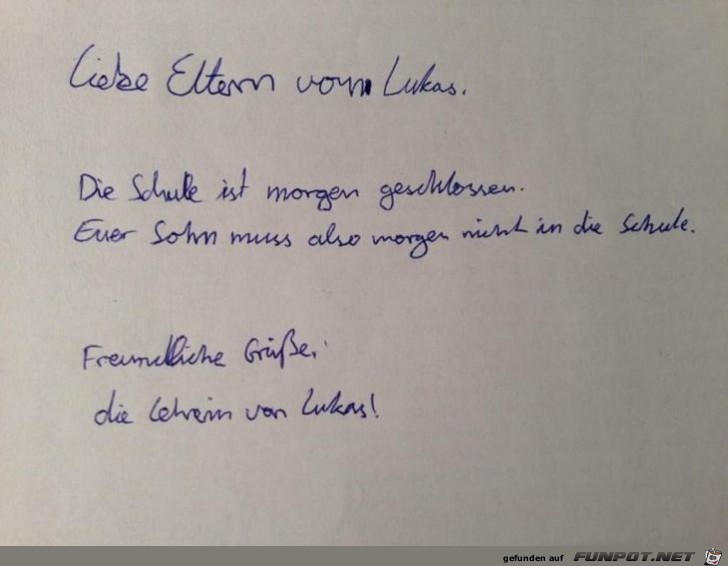 Liebe Eltern vom Lukas.
Die Schule ist morgen geschlossen.
Euer Sohn muss also morgen nicht in die Schule.
Freundliche Grüße,
die Lehrein von Lukas!
gefunden auf FUNPOT.NET